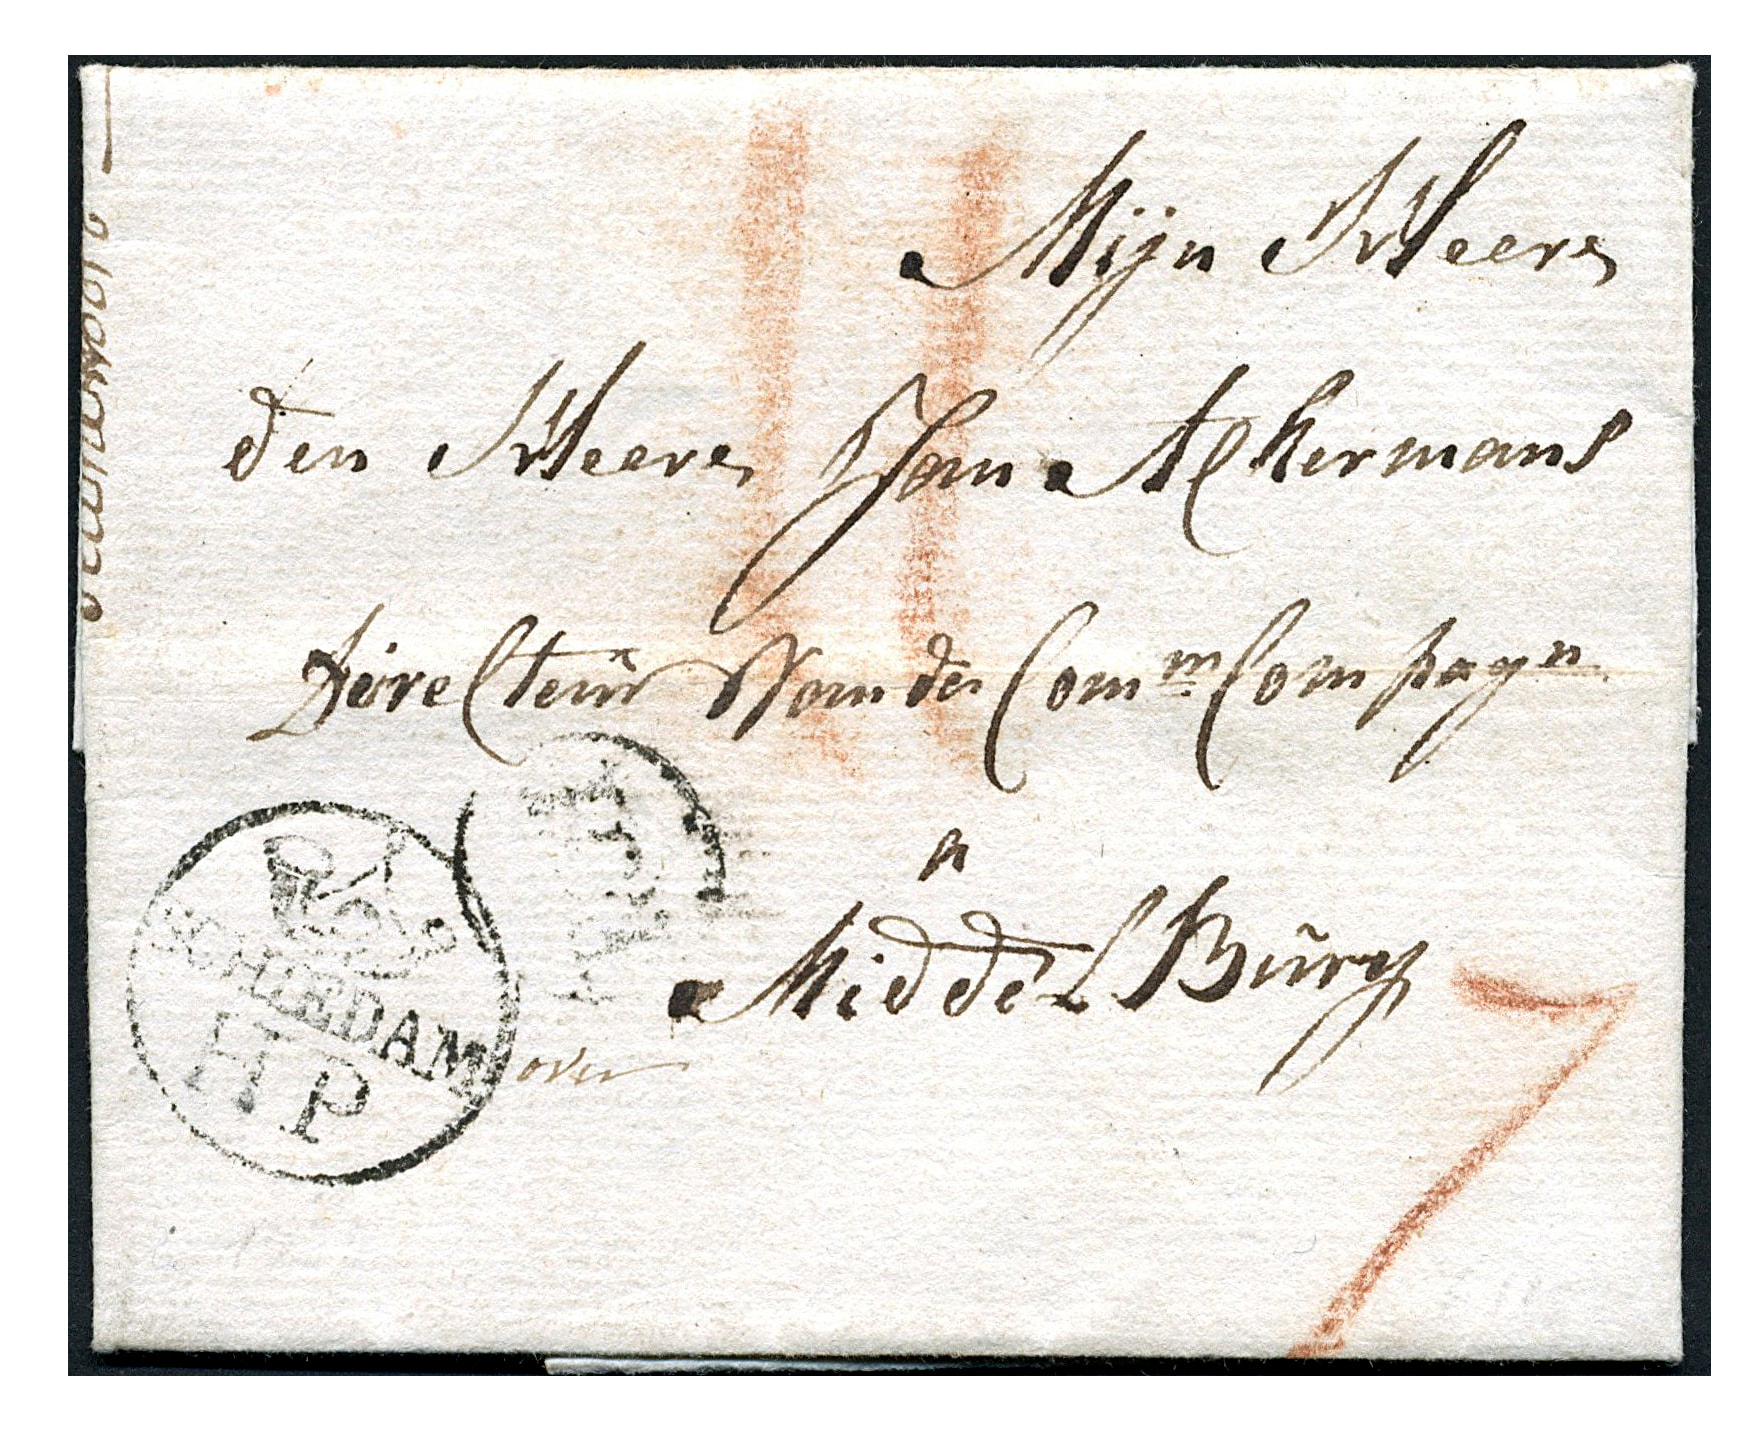 Mijn Heere
den Heere Jan Ackermans
Directeur Van de Comm Compagn
a
MiddelBurg
SCHIEDAM
HP
over
7